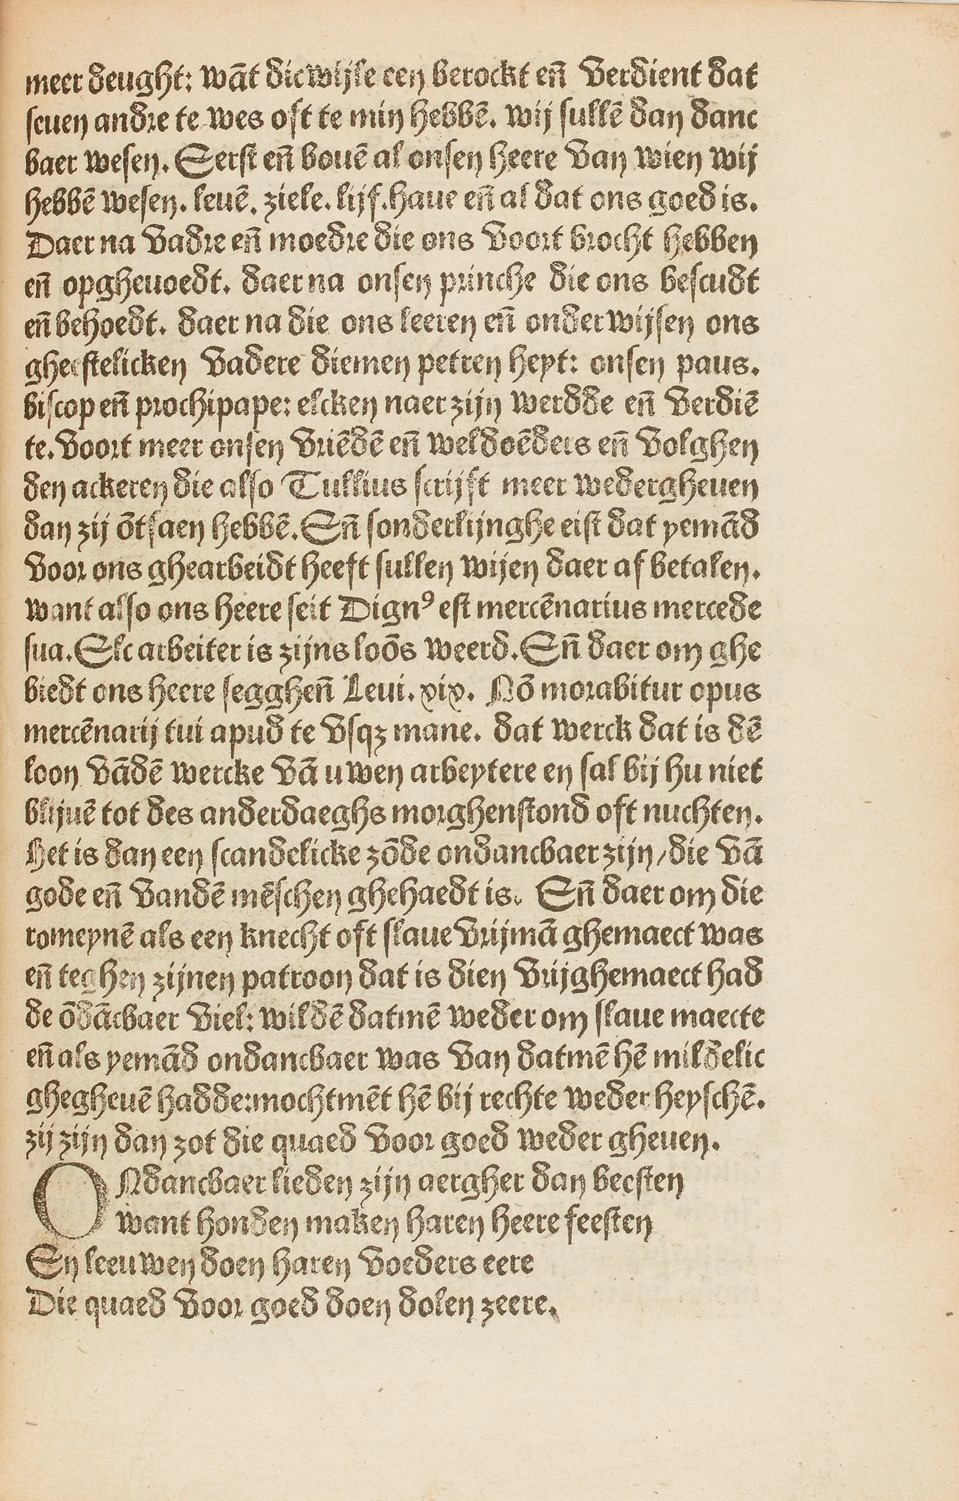 meer deught: wāt dicwijle een berockt eñ verdient dat
seuen andre te wes oft te min hebbē. wij sullē dan danc
baer wesen. Eerst eñ bouē al onsen heere van wien wij
hebbē wesen. leuē. ziele. lijf. haue eñ al dat ons goed is.
Daer na vadre eñ moedre die ons voort brocht hebben
eñ opgheuoedt. daer na onsen princhē die ons bescudt
eñ behoedt. daer na die ons leeren eñ onderwijsen ons
gheestelicken vadere diemen petren heyt: onsen paus.
biscop eñ prochipape: elcken naer zijn werdde eñ verdiē
te. voort meer onsen vriēdē eñ weldoēders eñ volghen
den ackeren die also Tullius scrijft meer wedergheuen
dan zij ōtfaen hebbē. Eñ sonderlijnghe eist dat yemād
voor ons ghearbeidt heeft sullen wijen daer af betalen.
want also ons heere seit Dignꝰ est mercēnarius mercede
sua. Elc arbeiter is zijns loōs weerd. Eñ daer om ghe
biedt ons heere segghēn Leui. xix. Nō morabitur opus
mercēnarij tui apud te vsqꝫ mane. dat werck dat is dē
loon vādē wercke vā uwen arbeytere en sal bij hu niet
blijuē tot des anderdaeghs morghenstond oft nuchten.
Het is dan een scandelicke zōde ondancbaer zijn/die vā
gode eñ vandē mēschen ghehaedt is. Eñ daer om die
romeynē als een knecht oft slaue vrijmā ghemaect was
eñ teghen zijnen patroon dat is dien vrijghemaect had
de ōdācbaer viel: wildē datmē weder om slaue maecte
eñ als yemād ondancbaer was van datmē hē mildelic
ghegheuē hadde: mochtmēt hē bij rechte weder heyschē.
zij zijn dan zot die quaed voor goed weder gheuen.
ONdancbaer lieden zijn aergher dan beesten
want honden maken haren heere feesten
En leeuwen doen haren voeders eere
Die quaed voor goed doen dolen zeere.